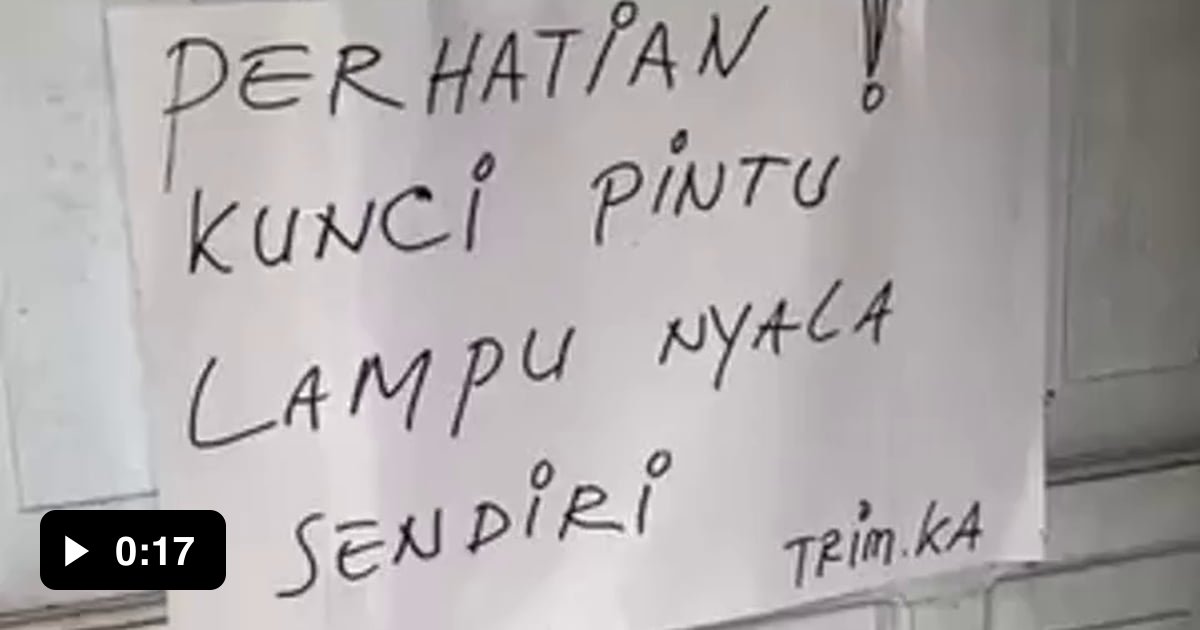 PERHATIAN !
KUNCi PiNTU
LAMPU NYALA
SENDiRi
TRiM.KA
0:17